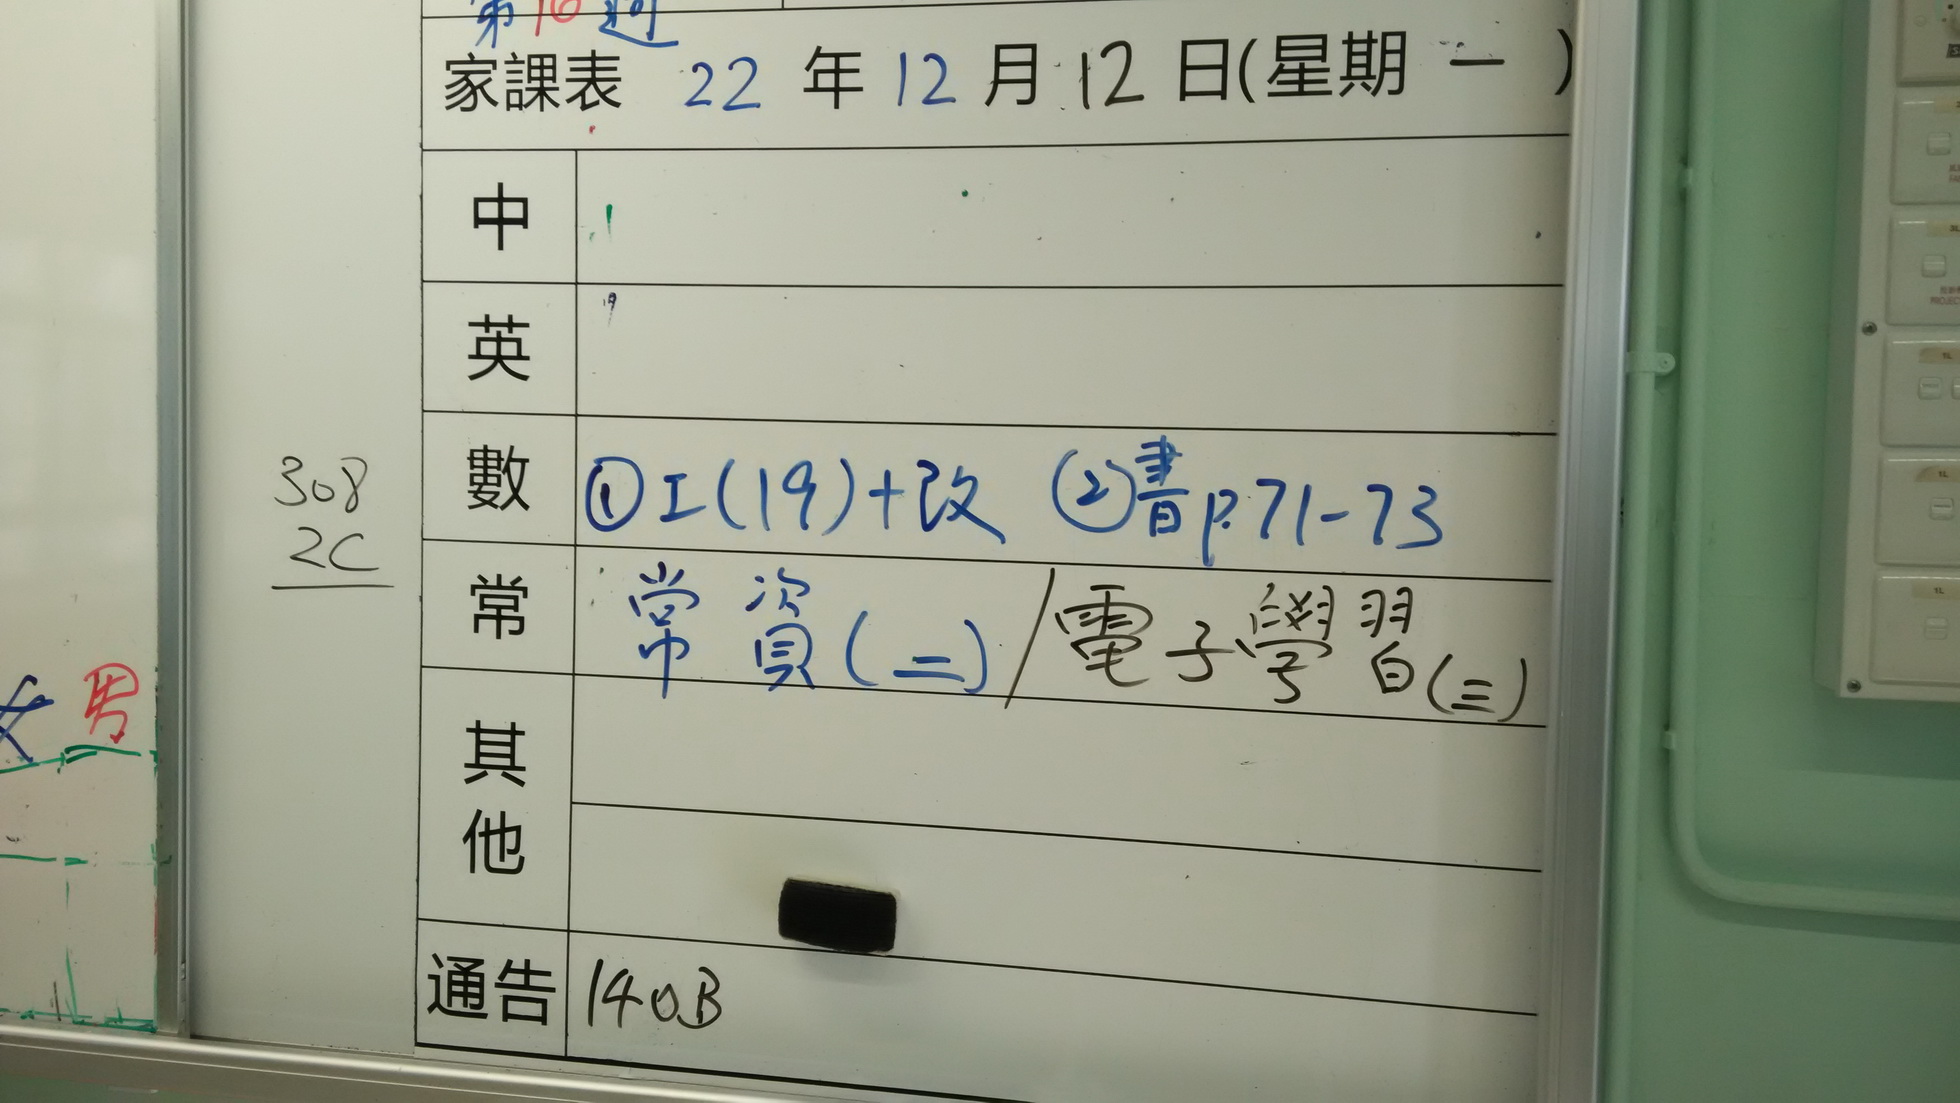 第16週
家課表 22年12月12日(星期一)
中
英
數 ①工(19)+改 ②書p.71-73
308
2C
常 常資(二)/電子學習(三)
女 男
其他
通告 140B